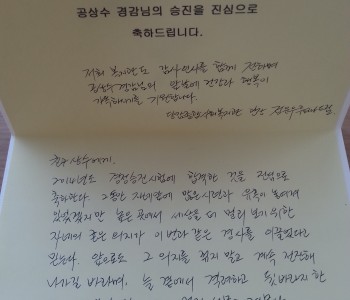 공상수 경감님의 승진을 진심으로
축하드립니다.
저희 복지관도 감사인사를 함께 전하며
공상수 경감님의 앞날에 건강과 행복이
가득하시기를 기원합니다.
친구 상수에게.
2014년도 경정승진시험에 합격한 것을 진심으로
축하한다. 2동안 자네만에 많은 시련과 유혹이 놓여져
있었겠지만 높은 곳에서 세상을 더 멀리 보기 위한
자네의 굳은 의지가 이번과 같은 경사를 이끌었다고
믿는다. 앞으로도 그 의지를 잃지 말고 계속 전진해
나가길 바라며, 늘 곁에서 격려하고 뒷바라지 한